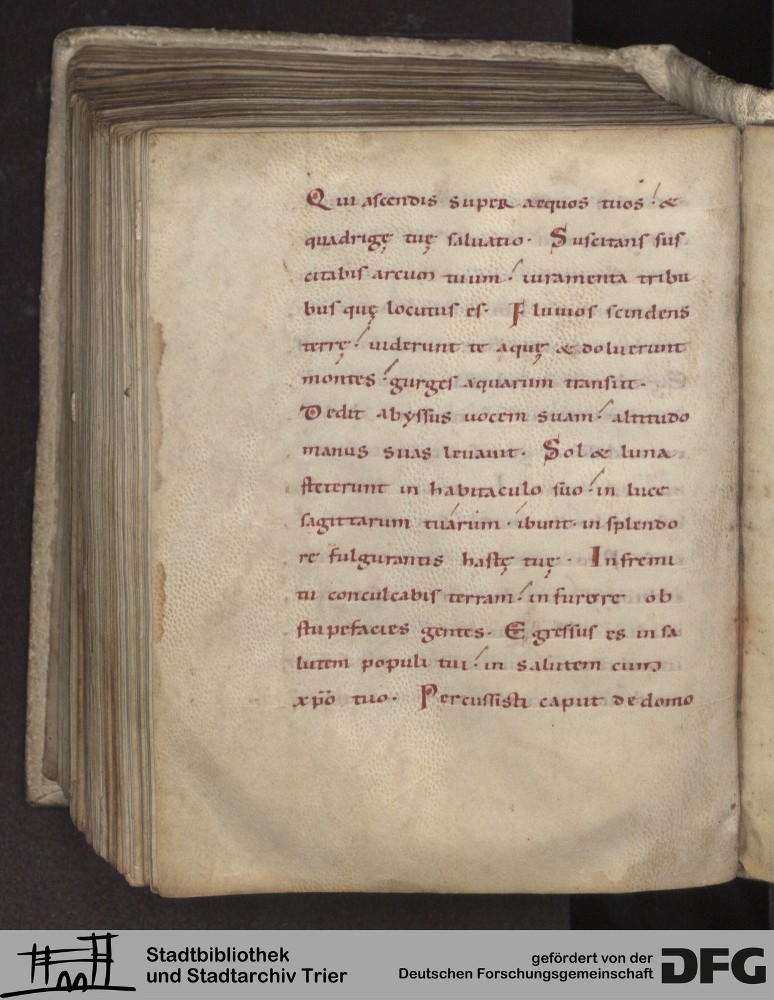 Qui ascendis super aequos tuos · &
quadrigę tuę saluatio · Suscitans sus
citabis arcum tuum · iuramenta tribu
bus quę locutus es · Fluuios scindens
terrę · uiderunt te aquę & doluerunt
montes · gurges aquarum transiit ·
Dedit abyssus uocem suam · altitudo
manus suas leuauit · Sol & luna
steterunt in habitaculo suo · in luce
sagittarum tuarum · ibunt · in splendo
re fulgurantis hastę tuę · In fremi
tu conculcabis terram · in furore ob
stupefacies gentes · Egressus es in sa
lutem populi tui · in salutem cum
xp̄o tuo · Percussisti caput de domo
Stadtbibliothek
und Stadtarchiv Trier
gefördert von der
Deutschen Forschungsgemeinschaft
DFG